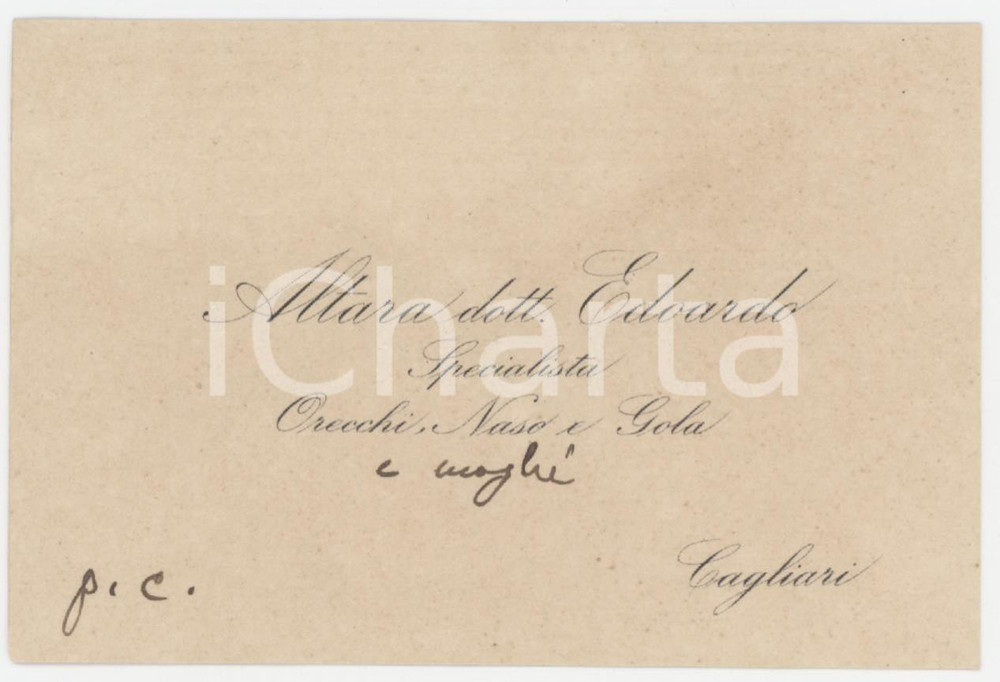 Altara dott. Edoardo
Specialista
Orecchi, Naso e Gola
e moglie
p. c.
Cagliari
iCharta